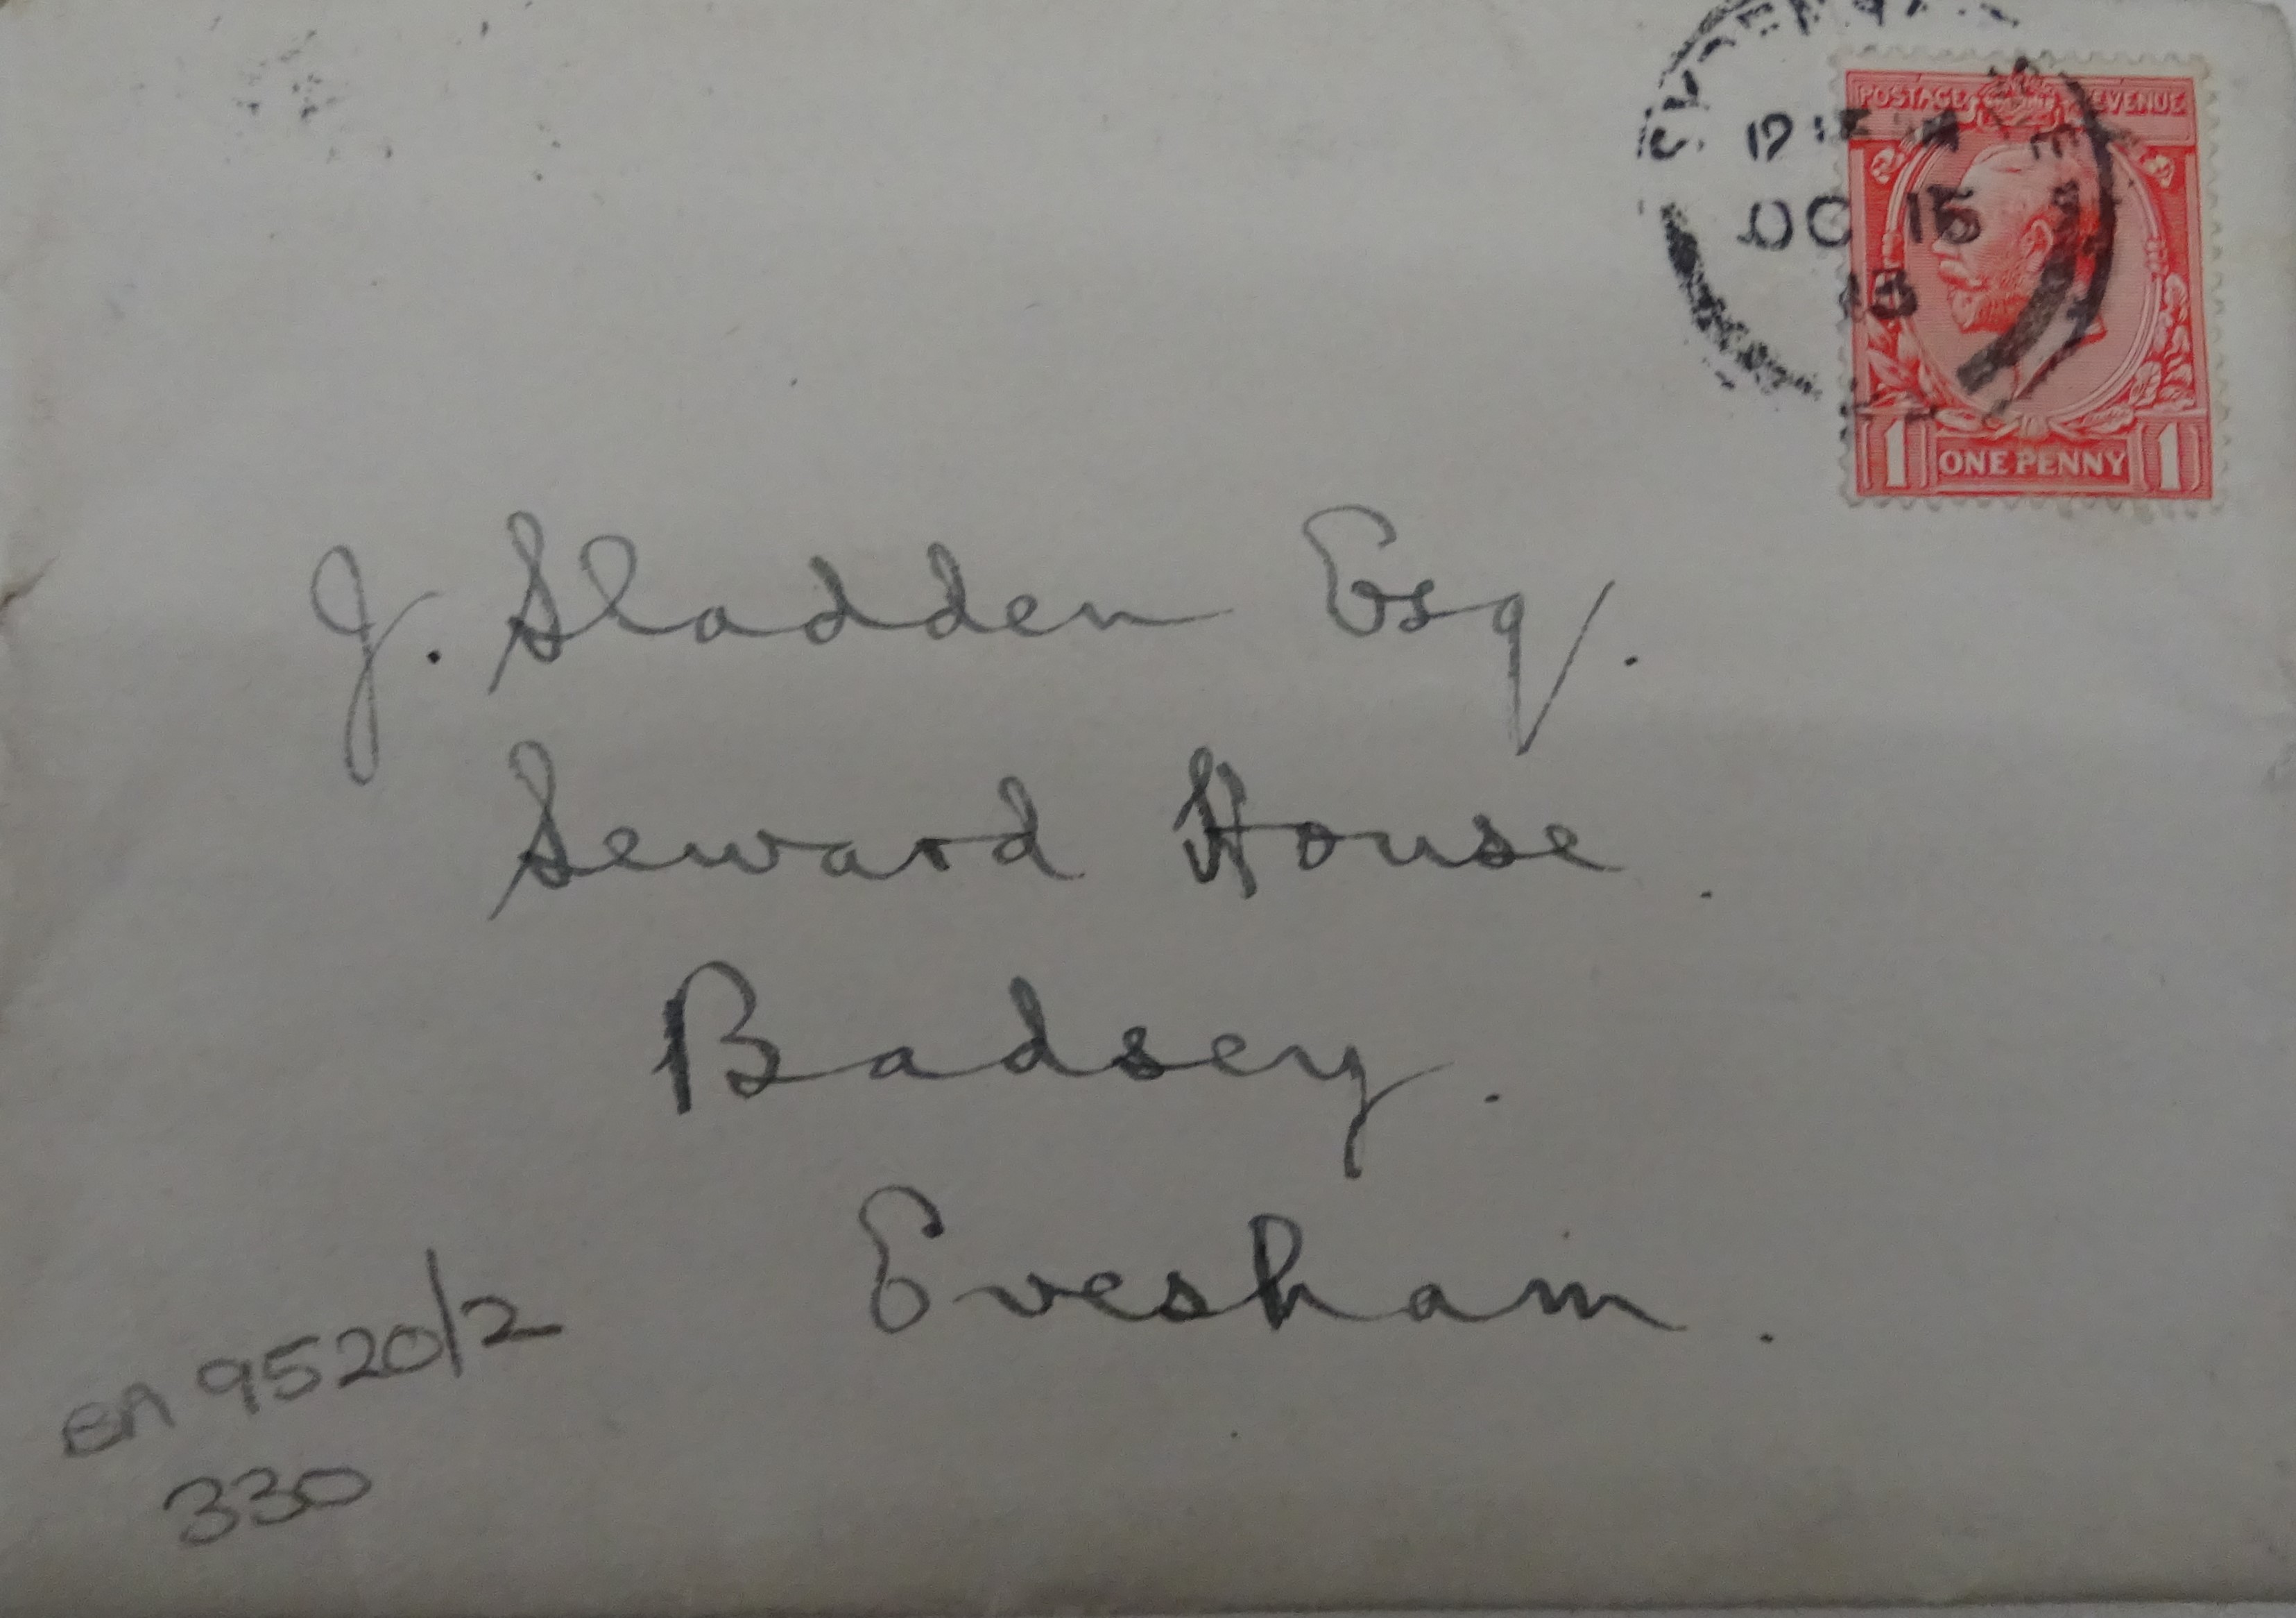 POSTAGE REVENUE
OC 15
15
1 ONE PENNY 1
J. Sladden Esq.
Seward House.
Badsey.
Evesham.
BA 9520/2
330